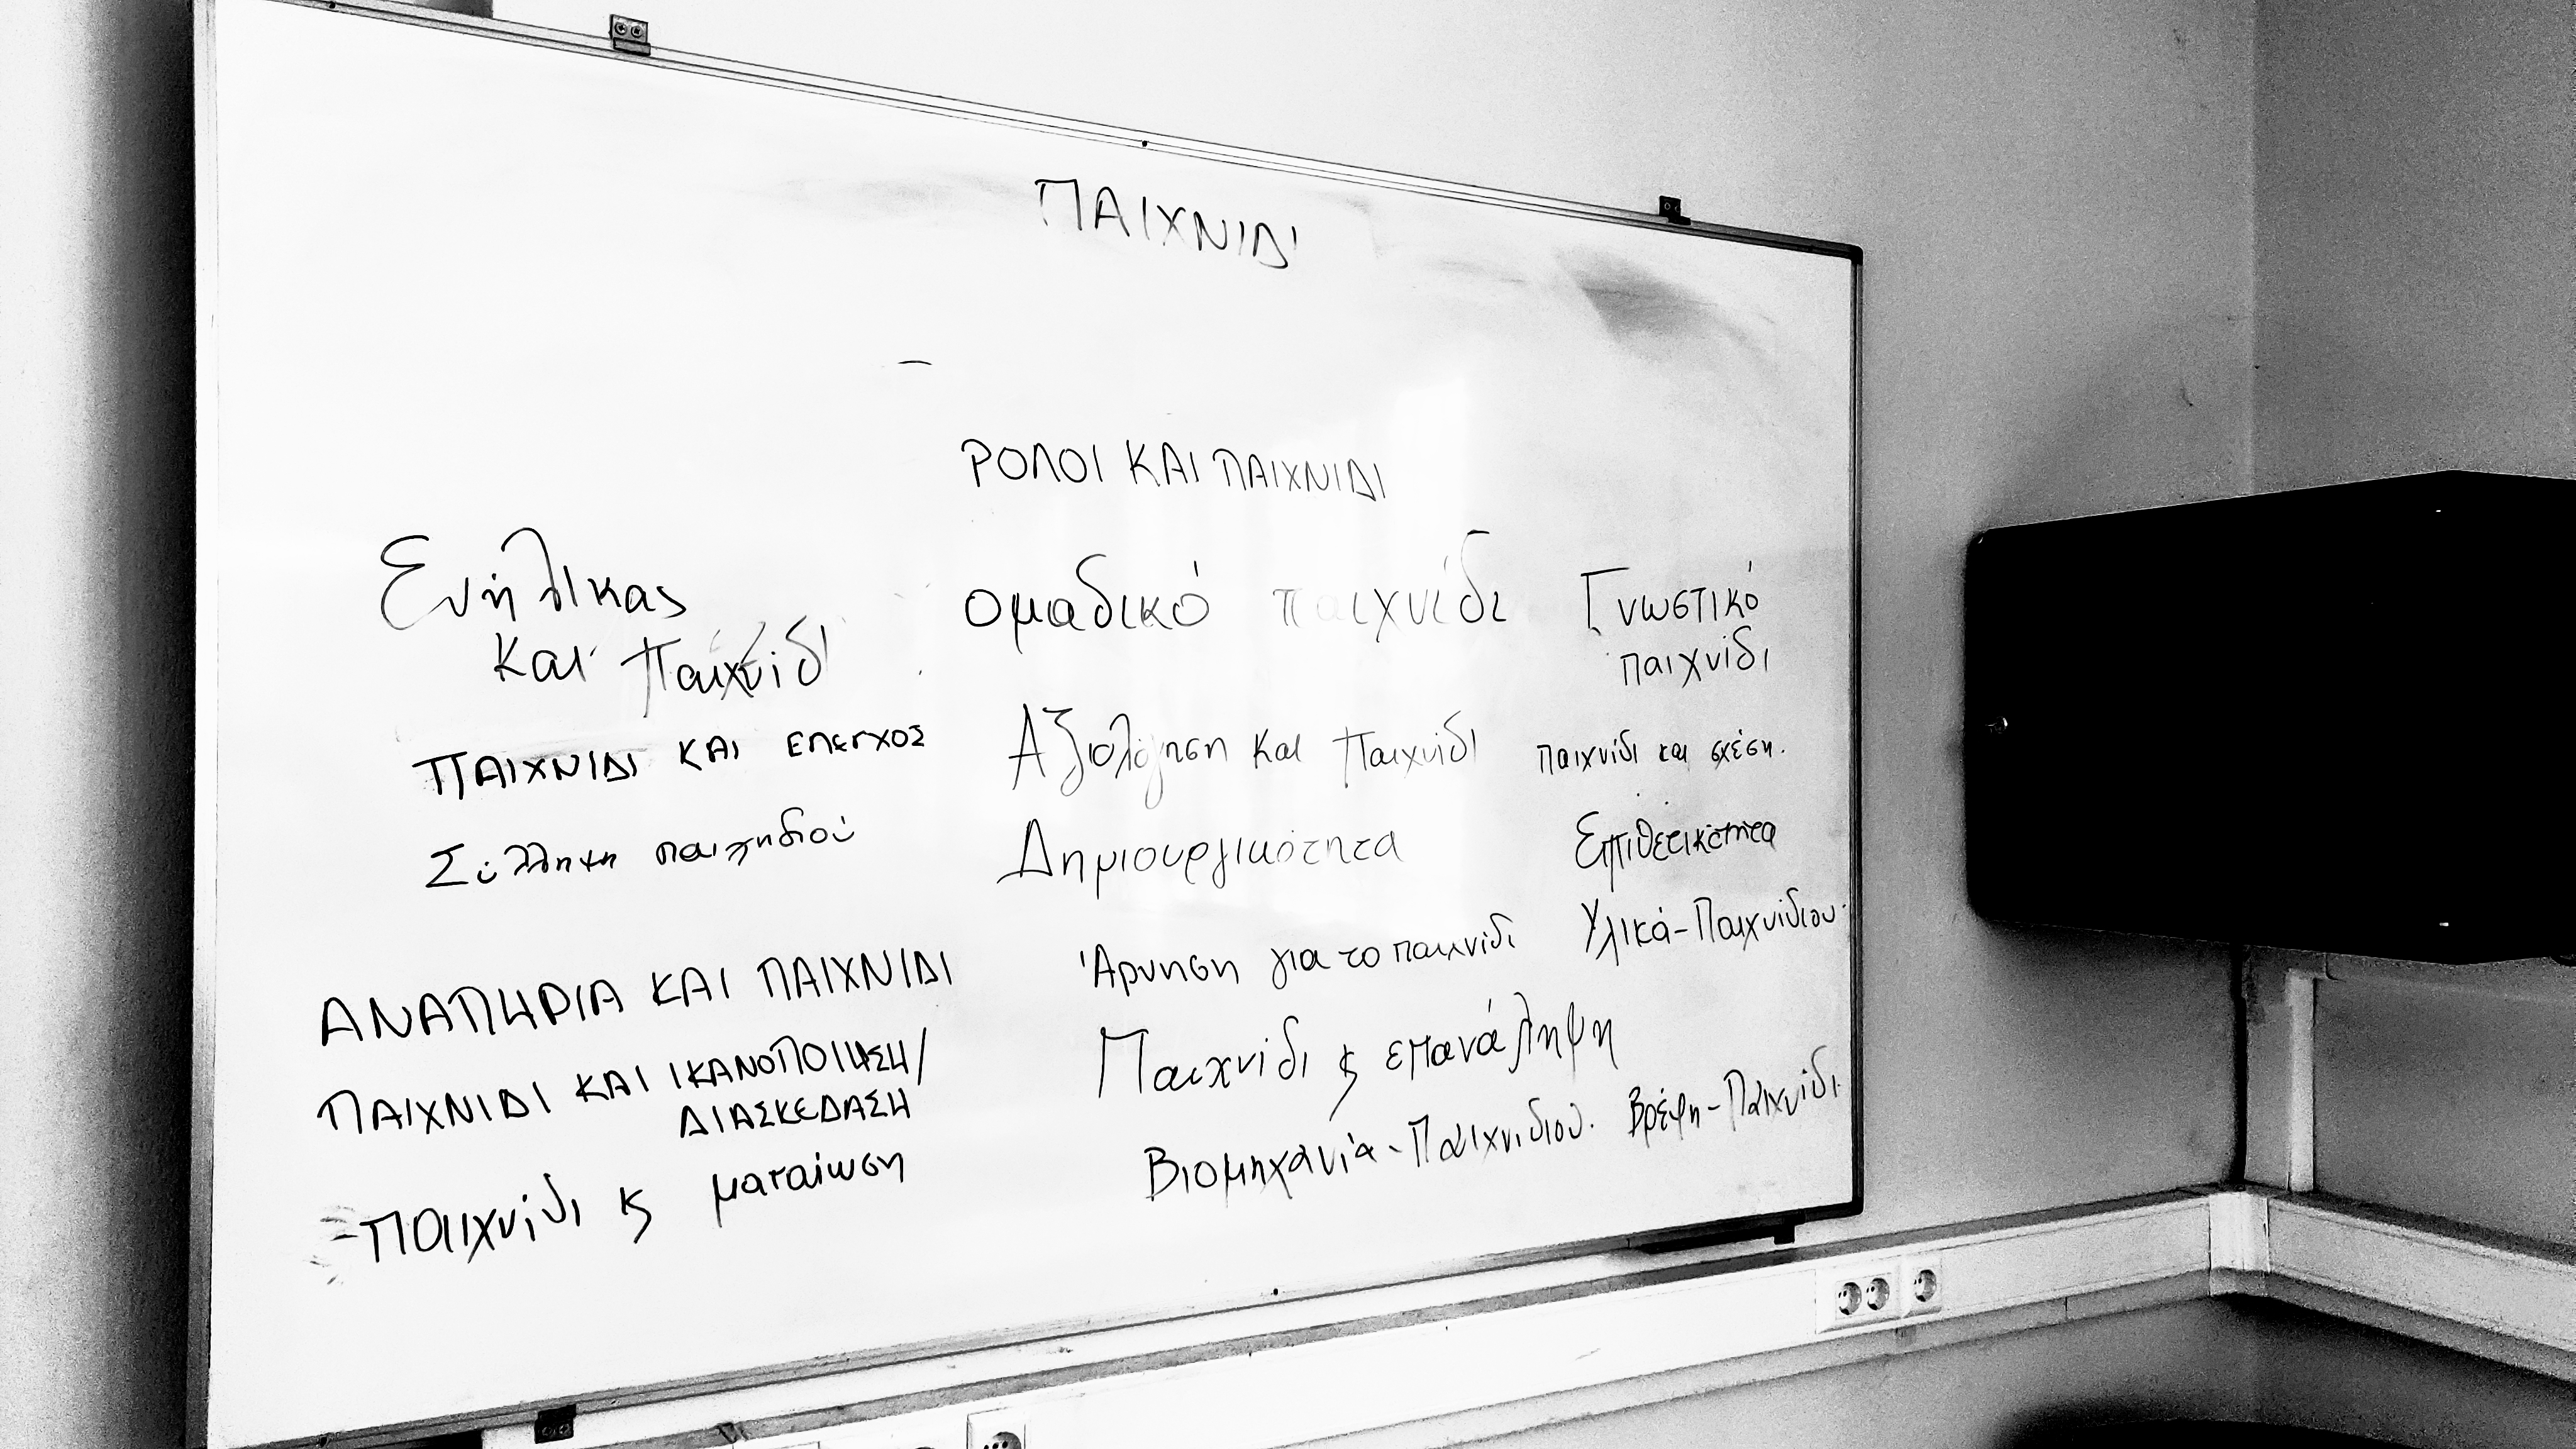 ΠΑΙΧΝΙΔΙ
ΡΟΛΟΙ ΚΑΙ ΠΑΙΧΝΙΔΙ
Ενήλικας
και παιχνίδι
ΠΑΙΧΝΙΔΙ ΚΑΙ ΕΛΕΓΧΟΣ
Σύλληψη παιχνδιού
ΑΝΑΠΗΡΙΑ ΚΑΙ ΠΑΙΧΝΙΔΙ
ΠΑΙΧΝΙΔΙ ΚΑΙ ΙΚΑΝΟΠΟΙΗΣΗ/
ΔΙΑΣΚΕΔΑΣΗ
-Παιχνίδι κ ματαίωση
ομαδικό παιχνίδι
Αξιολόγηση και Παιχνίδι
Δημιουργικότητα
Άρνηση για το παιχνίδι
Παιχνίδι κ επανάληψη
Βιομηχανία-Παιχνιδιού.
Γνωστικό
παιχνίδι
παιχνίδι και σχέση.
Επιθετικότητα
Υλικά-Παιχνίδιου.
Βρέφη-Παιχνίδι